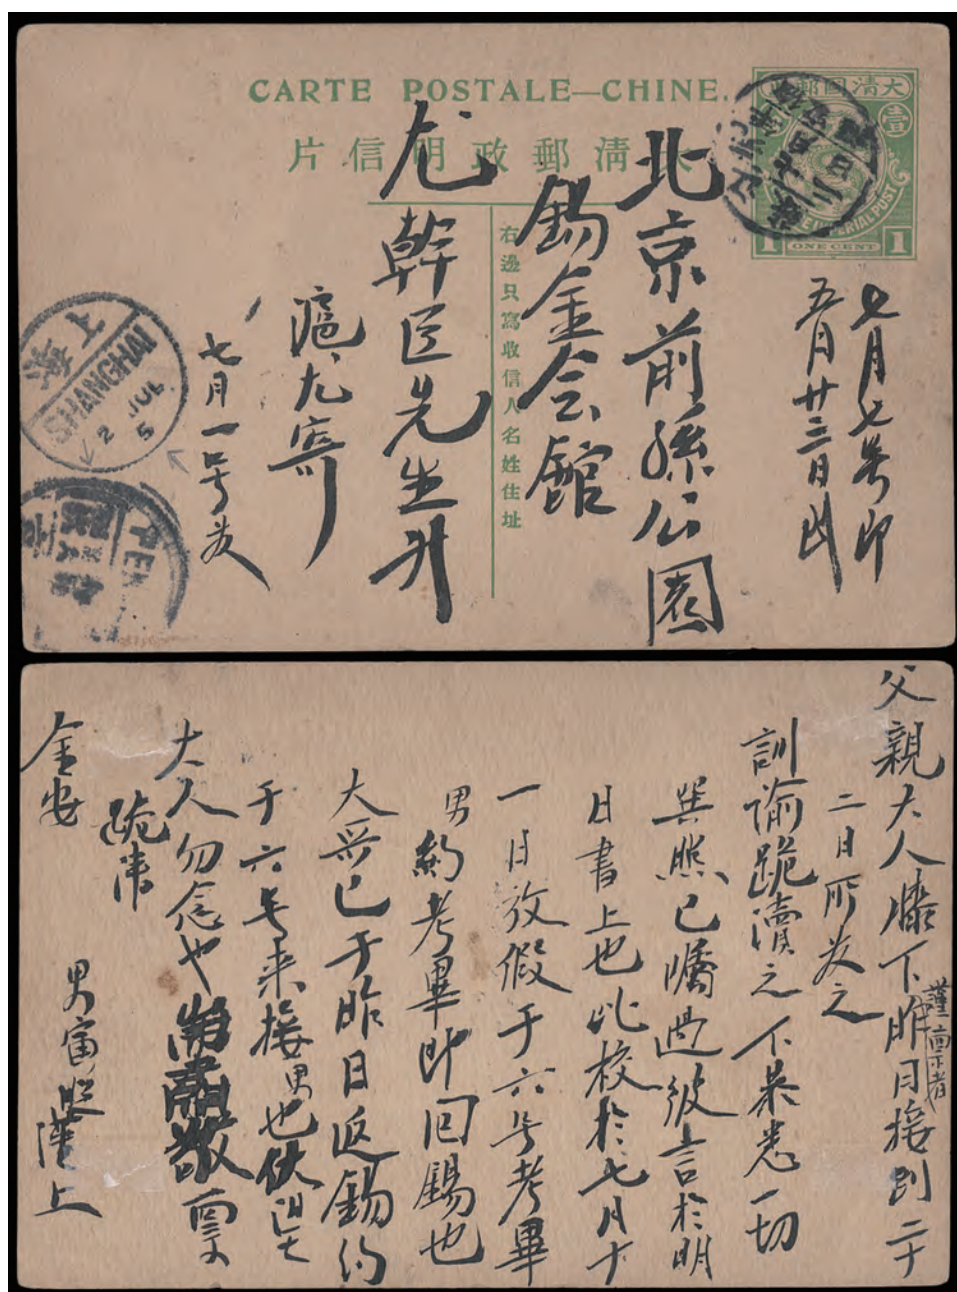 CARTE POSTALE—CHINE.
大清郵政明信片
大清國郵政
壹
IMPERIAL POST
1 ONE CENT 1
右邊只寫收信人名姓住址
七月七号即
五月廿三日到
北京前孫公園
錫金会館
尤幹臣先生升
滬尤寄
七月一号发
上海
SHANGHAI
2 JUL 5
PEKIN
父親大人膝下謹稟者昨日接到二十
二日所发之
訓諭跪讀之下恭悉一切
巽熙已囑過彼言於明
日書上也此校於七月十
一日放假于六号考畢
男約考畢即回錫也
大哥已于昨日返錫約
于六号来接男也伏望
大人勿念也肅稟
跪請
金安
男寅熙謹上